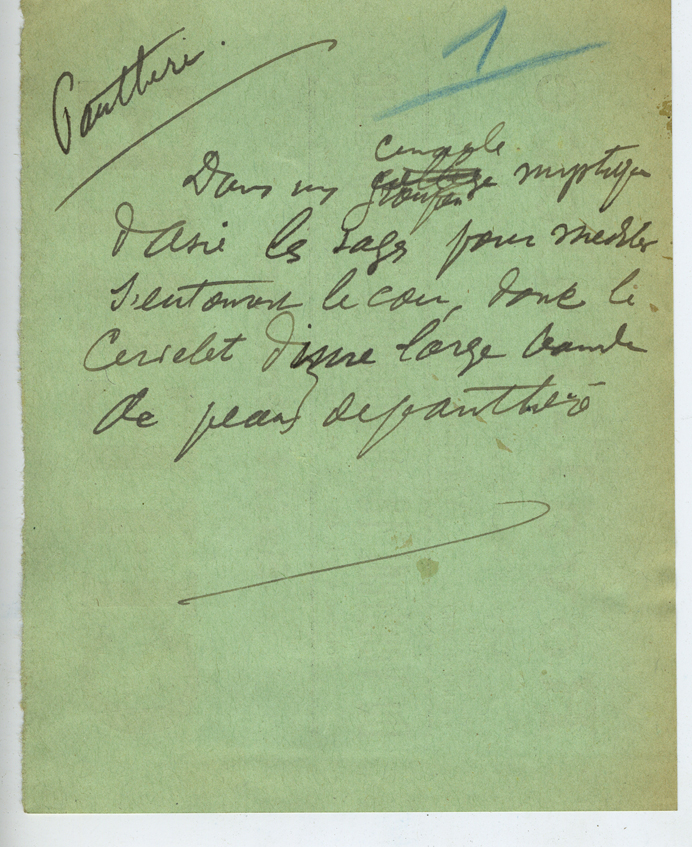 Panthère.
1
cenacle
Dans un mystique
d'Asie les sages pour mediter
s'entourent le cou, dont le
cervelet d'une large bande
de peau de panthère